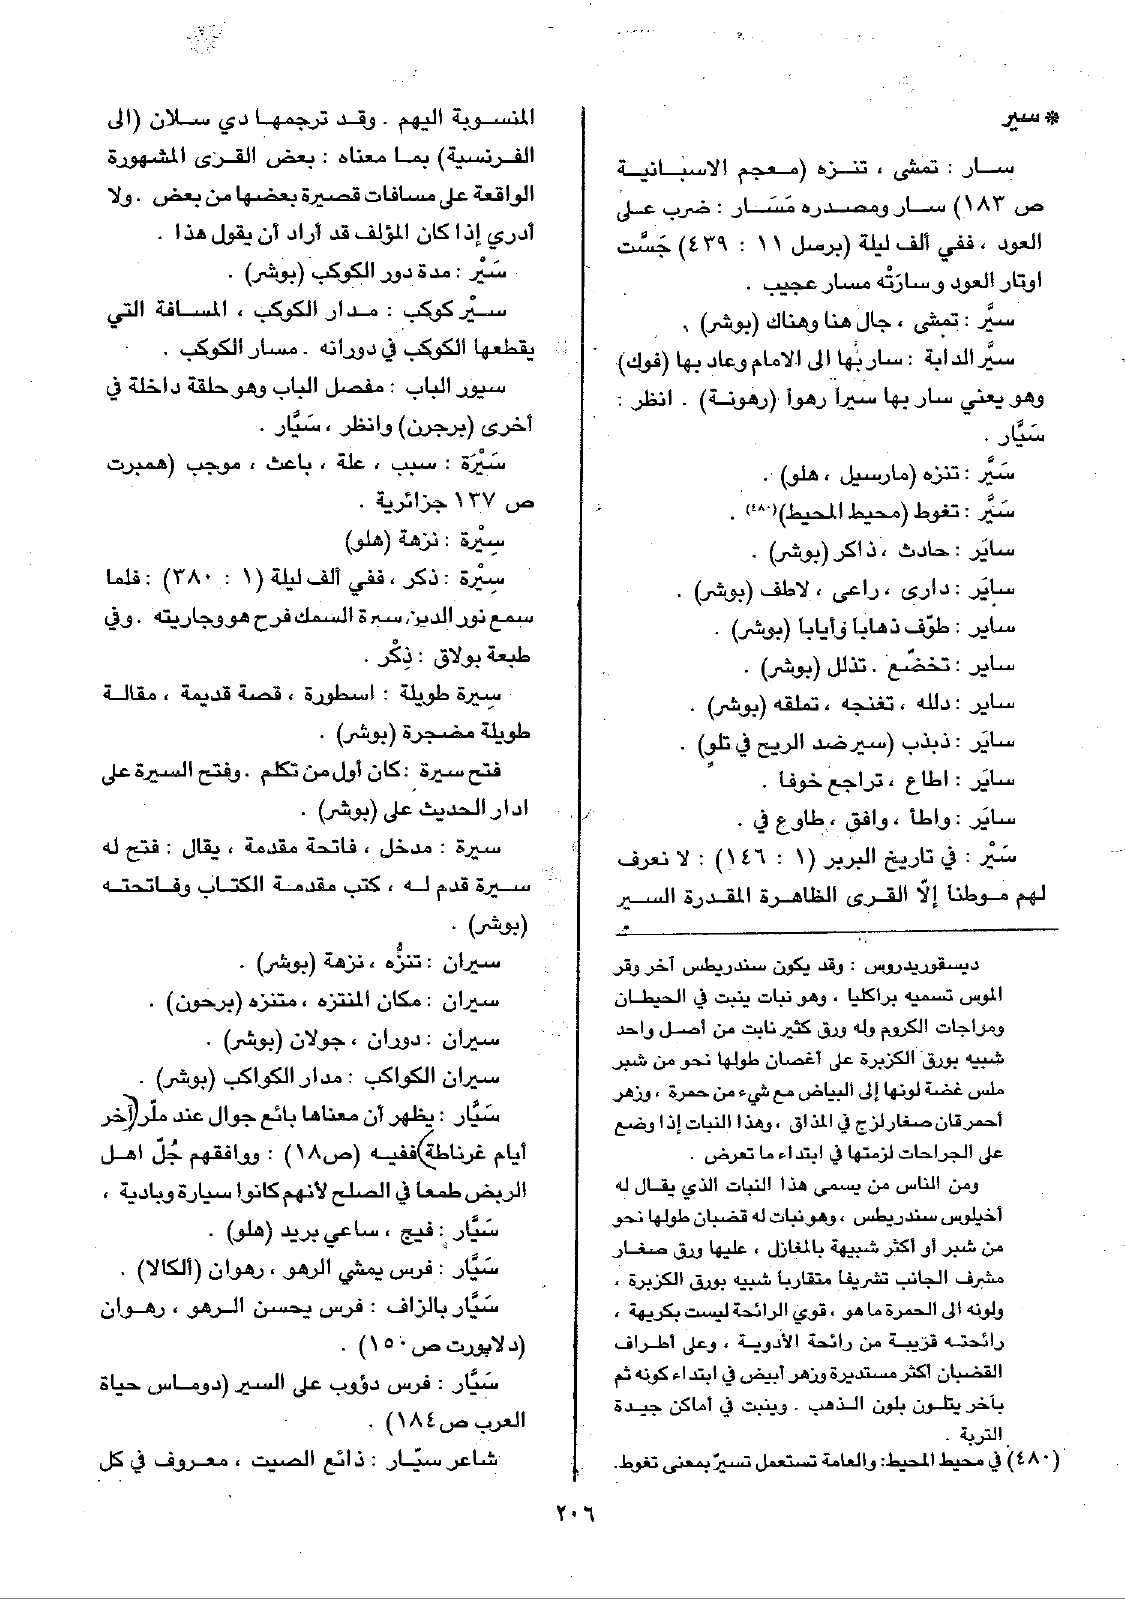 * سير
سار : تمشى ، تنزه (معجم الاسبانية
ص ١٨٣) سار ومصدره مَسَار : ضرب على
العود ، ففي ألف ليلة (برسل ١١ : ٤٣٩) جَسَّت
اوتار العود وسارَتْه مسار عجيب .
سيَّر : تمشى ، جال هنا وهناك (بوشر) .
سيَّر الدابة : سار بها الى الامام وعاد بها (فوك)
وهو يعني سار بها سيراً رهواً (رهونة) . انظر :
سَيَّار .
سَيَّر : تنزه (مارسيل ، هلو) .
سَيَّر : تغوط (محيط المحيط)(٤٨٠) .
سايَر : حادث ، ذاكر (بوشر) .
سايَر : دارى ، راعى ، لاطف (بوشر) .
ساير : طوّف ذهابا وأيابا (بوشر) .
ساير : تخضّع . تذلل (بوشر) .
ساير : دلله ، تغنجه ، تملقه (بوشر) .
سايَر : ذبذب (سير ضد الريح في تلوٍ) .
سايَر : اطاع ، تراجع خوفا .
سايَر : واطأ ، وافق ، طاوع في .
سَيْر : في تاريخ البربر (١ : ١٤٦) : لا نعرف
لهم موطنا إلّا القرى الظاهرة المقدرة السير
ديسقوريدروس : وقد يكون سندريطس آخر وقر
الموس تسميه براكليا ، وهو نبات ينبت في الحيطان
ومراجات الكروم وله ورق كثير نابت من أصل واحد
شبيه بورق الكزبرة على أغصان طولها نحو من شبر
ملس غضة لونها إلى البياض مع شيء من حمرة ، وزهر
أحمر قان صغار لزج في المذاق ، وهذا النبات إذا وضع
على الجراحات لزمتها في ابتداء ما تعرض .
ومن الناس من يسمى هذا النبات الذي يقال له
أخيلوس سندريطس ، وهو نبات له قضبان طولها نحو
من شبر أو أكثر شبيهة بالمغازل ، عليها ورق صغار
مشرف الجانب تشريفا متقاربا شبيه بورق الكزبرة ،
ولونه الى الحمرة ما هو ، قوي الرائحة ليست بكريهة ،
رائحته قريبة من رائحة الأدوية ، وعلى أطراف
القضبان أكثر مستديرة وزهر أبيض في ابتداء كونه ثم
بآخر يتلون بلون الذهب . وينبت في أماكن جيدة
التربة .
(٤٨٠) في محيط المحيط: والعامة تستعمل تسيرّ بمعنى تغوط.
المنسوبة اليهم . وقد ترجمها دي سلان (الى
الفرنسية) بما معناه : بعض القرى المشهورة
الواقعة على مسافات قصيرة بعضها من بعض . ولا
أدري إذا كان المؤلف قد أراد أن يقول هذا .
سَيْر : مدة دور الكوكب (بوشر) .
سير كوكب : مدار الكوكب ، المسافة التي
يقطعها الكوكب في دورانه . مسار الكوكب .
سيور الباب : مفصل الباب وهو حلقة داخلة في
أخرى (برجرن) وانظر ، سَيَّار .
سَيْرَة : سبب ، علة ، باعث ، موجب (همبرت
ص ١٣٧ جزائرية .
سِيْرة : نزهة (هلو)
سِيْرة : ذكر ، ففي ألف ليلة (١ : ٣٨٠) : فلما
سمع نور الدين سيرة السمك فرح هو وجاريته . وفي
طبعة بولاق : ذِكْر .
سِيرة طويلة : اسطورة ، قصة قديمة ، مقالة
طويلة مضجرة (بوشر) .
فتح سيرة : كان أول من تكلم . وفتح السيرة على
ادار الحديث على (بوشر) .
سيرة : مدخل ، فاتحة مقدمة ، يقال : فتح له
سيرة قدم له ، كتب مقدمة الكتاب وفاتحته
(بوشر) .
سيران : تنزُّه ، نزهة (بوشر) .
سيران : مكان المنتزه ، متنزه (برحون) .
سيران : دوران ، جولان (بوشر) .
سيران الكواكب : مدار الكواكب (بوشر) .
سَيَّار : يظهر أن معناها بائع جوال عند ملّر (آخر
أيام غرناطة) ففيه (ص١٨) : ووافقهم جُلّ اهل
الربض طمعا في الصلح لأنهم كانوا سيارة وبادية ،
سَيَّار : فيج ، ساعي بريد (هلو) .
سَيَّار : فرس يمشي الرهو ، رهوان (ألكالا) .
سَيَّار بالزاف : فرس يحسن الرهو ، رهوان
(دلابورت ص ١٥٠) .
سَيَّار : فرس دؤوب على السير (دوماس حياة
العرب ص ١٨٤) .
شاعر سيّار : ذائع الصيت ، معروف في كل
٢٠٦